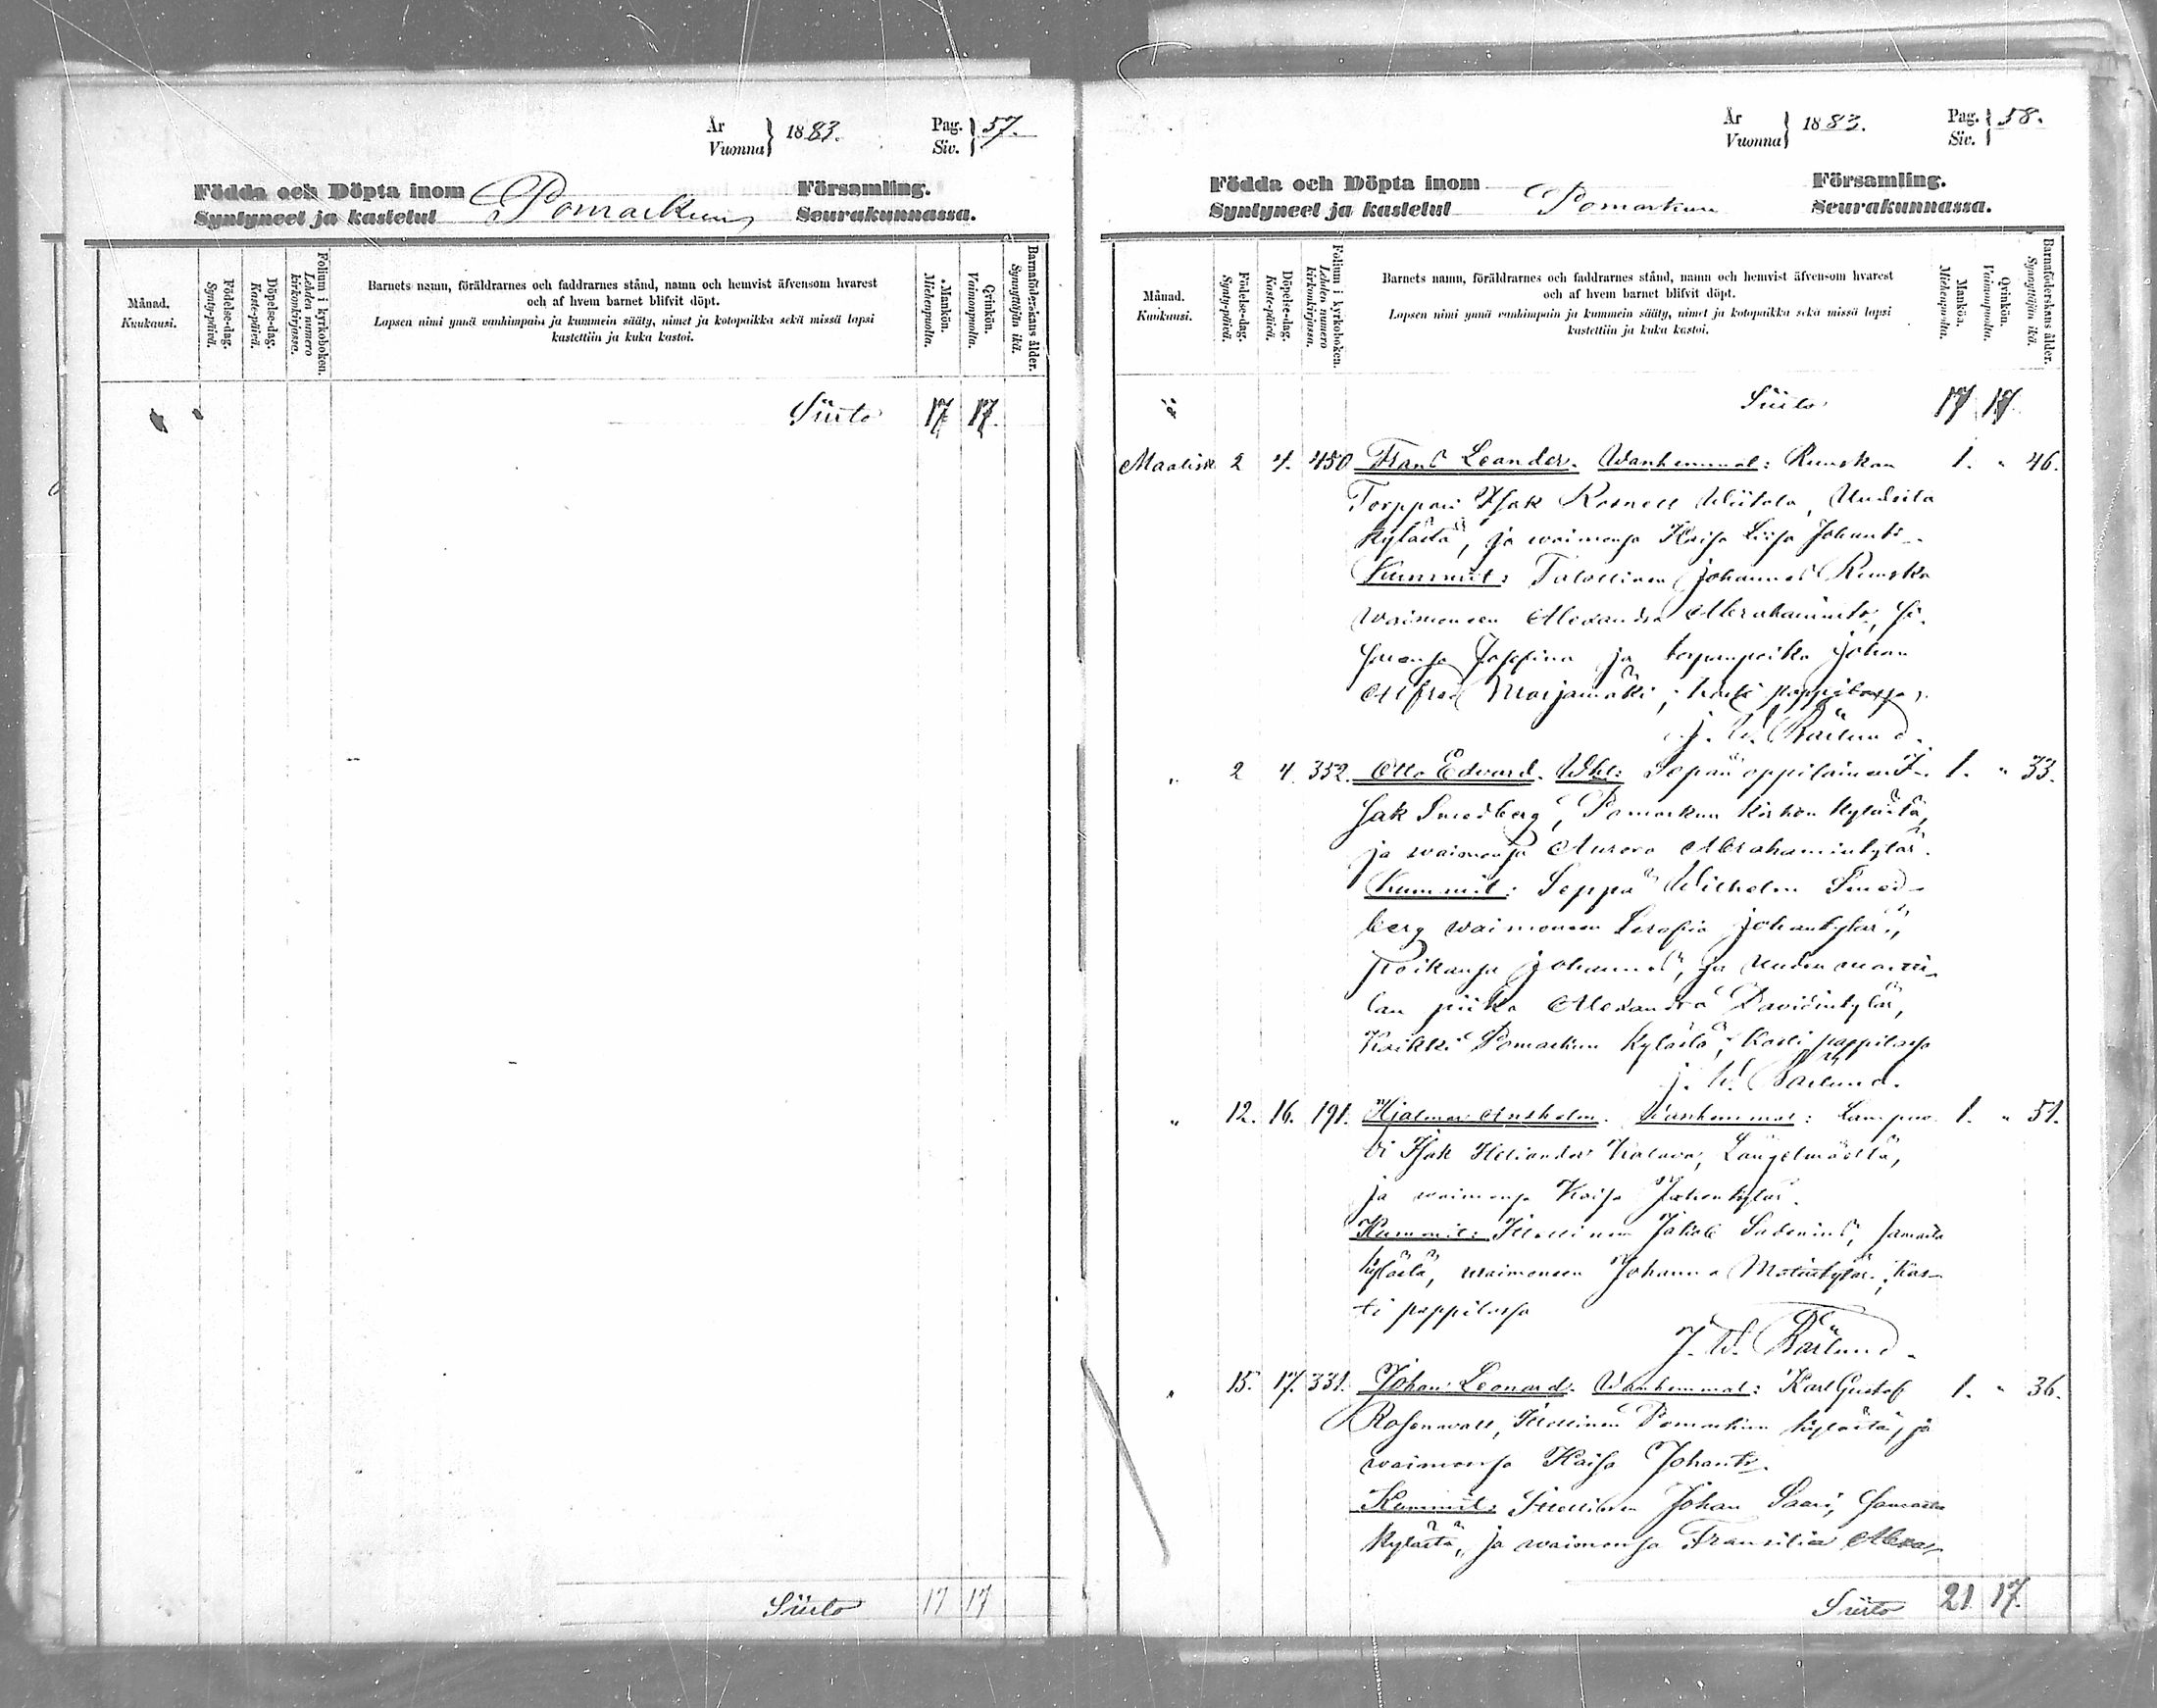 År
Vuonna } 1883.
Pag.
Siv. } 57.
Födda och Döpta inom
Syntyneet ja kastetut Pomarkun
Församling.
Seurakunnassa.
Månad.
Kuukausi.
Födelse-dag.
Synty-päivä.
Döpelse-dag.
Kaste-päivä.
Folium i kyrkoboken.
Lehden numero
kirkonkirjassa.
Barnets namn, föräldrarnes och faddrarnes stånd, namn och hemvist äfvensom hvarest
och af hvem barnet blifvit döpt.
Lapsen nimi ynnä vanhimpain ja kummein sääty, nimet ja kotopaikka sekä missä lapsi
kastettiin ja kuka kastoi.
Mankön.
Miehenpuolta.
Qvinkön.
Vaimonpuolta.
Barnaföderskans ålder.
Synnyttäjän ikä.
Siirto 17 17.
Siirto 17 17
År
Vuonna } 1883.
Pag.
Siv. } 58.
Födda och Döpta inom
Syntyneet ja kastetut Pomarkun
Församling.
Seurakunnassa.
Månad.
Kuukausi.
Födelse-dag.
Synty-päivä.
Döpelse-dag.
Kaste-päivä.
Folium i kyrkoboken.
Lehden numero
kirkonkirjassa.
Barnets namn, föräldrarnes och faddrarnes stånd, namn och hemvist äfvensom hvarest
och af hvem barnet blifvit döpt.
Lapsen nimi ynnä vanhimpain ja kummein sääty, nimet ja kotopaikka sekä missä lapsi
kastettiin ja kuka kastoi.
Mankön.
Miehenpuolta.
Qvinkön.
Vaimonpuolta.
Barnaföderskans ålder.
Synnyttäjän ikä.
Siirto 17 17
Maalisk 2 4. 450 Frans Leander. Wanhemmat: Ruuskan 1. " 46.
Torppari Isak Rosnell Wiitala, Uudelta
kylästä, ja waimonsa Kaisa Liisa Johants.
Kummit: Talollinen Johannes Ruuska
waimoneen Alexandra Abrahamints, si-
sarensa Josefina ja torpanpoika Johan
Alfred Marjamäki; kasti pappilassa
J. W. Bärlund.
" 2 4. 352. Otto Edvard. Wht: Sepän oppilainen I- 1. " 33.
sak Smedberg, Pomarkun kirkon kylästä,
ja waimonsa Aurora Abrahamintytär.
Kummit: Seppä Wilhelm Smed-
berg waimoneen Serafia Johantytär,
Poikansa Johannes, ja Uuden marti-
lan piika Alexandra Davidintytär,
Kaikki Pomarkun kylästä; kasti pappilassa
J. W. Bärlund.
" 12. 16. 191. Hjalmar Anshelm. Wanhemmat: Lampuo- 1. " 51.
ti Isak Heliander Längelmäeltä,
ja waimonsa Kaisa Johantytär.
Kummit: Itsellinen Jakob Sadenius, samasta
kylästä, waimoneen Johanna Matintytär; kas-
ti pappilassa
J. W. Bärlund.
" 15. 17. 331. Johan Leonard. Wanhemmat: Karl Gustaf 1. " 36.
Rosenwall, Itsellinen Pomarkun kylästä, ja
waimonsa Kaisa Johants.
Kummit: Itsellinen Johan Saari, samasta
kylästä, ja waimonsa Fransilia Alexa-
Siirto 21 17.